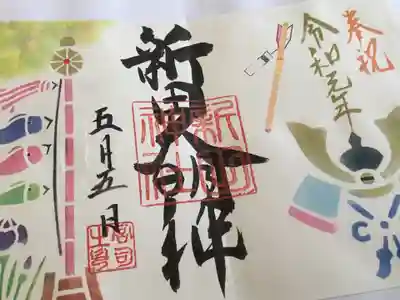 奉祝
令和元年
新田大明神
新田
神社
五月五日
宮司